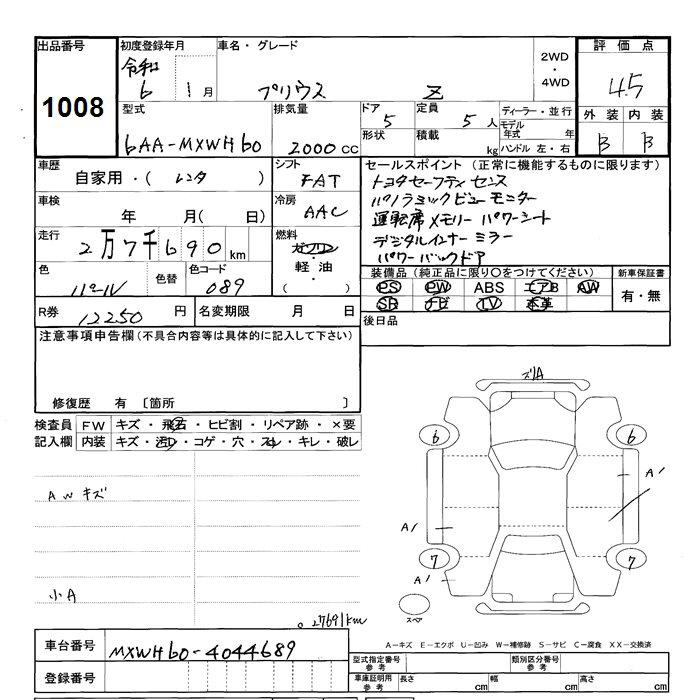 出品番号 1008
初度登録年月 令和 6 1月
車名・グレード プリウス Z
2WD・4WD
評価点 4.5
外装 B 内装 B
型式 6AA-MXWH60
排気量 2000cc
ドア 5 形状
定員 5人 積載 kg
ディーラー・並行
モデル年式 年
ハンドル 左・右
車歴 自家用・(レンタ)
シフト FAT
車検 年 月(日)
冷房 AAC
走行 2万7千690km
燃料 ガソリン・軽油・( )
色 パール 色替 色コード 089
R券 12250円 名変期限 月 日
セールスポイント(正常に機能するものに限ります)
トヨタセーフティセンス
パノラミックビューモニター
運転席メモリーパワーシート
デジタルインナーミラー
パワーバックドア
装備品(純正品に限り○をつけてください)
PS PW ABS エアB AW
SR ナビ TV 本革
新車保証書 有・無
後日品
注意事項申告欄(不具合内容等は具体的に記入して下さい)
修復歴 有〔箇所 〕
検査員記入欄
FW キズ・飛石・ヒビ割・リペア跡・×要
内装 キズ・汚れ・コゲ・穴・スレ・キレ・破レ
AWキズ
小A
27691km
ズリA
6 6
A1
A1
7 7
A1
スペア
A-キズ E-エクボ U-凹み W-補修跡 S-サビ C-腐食 XX-交換済
車台番号 MXWH60-4044689
登録番号
型式指定番号 参考
類別区分番号 参考
車庫証明用 参考 長さ cm 幅 cm 高さ cm